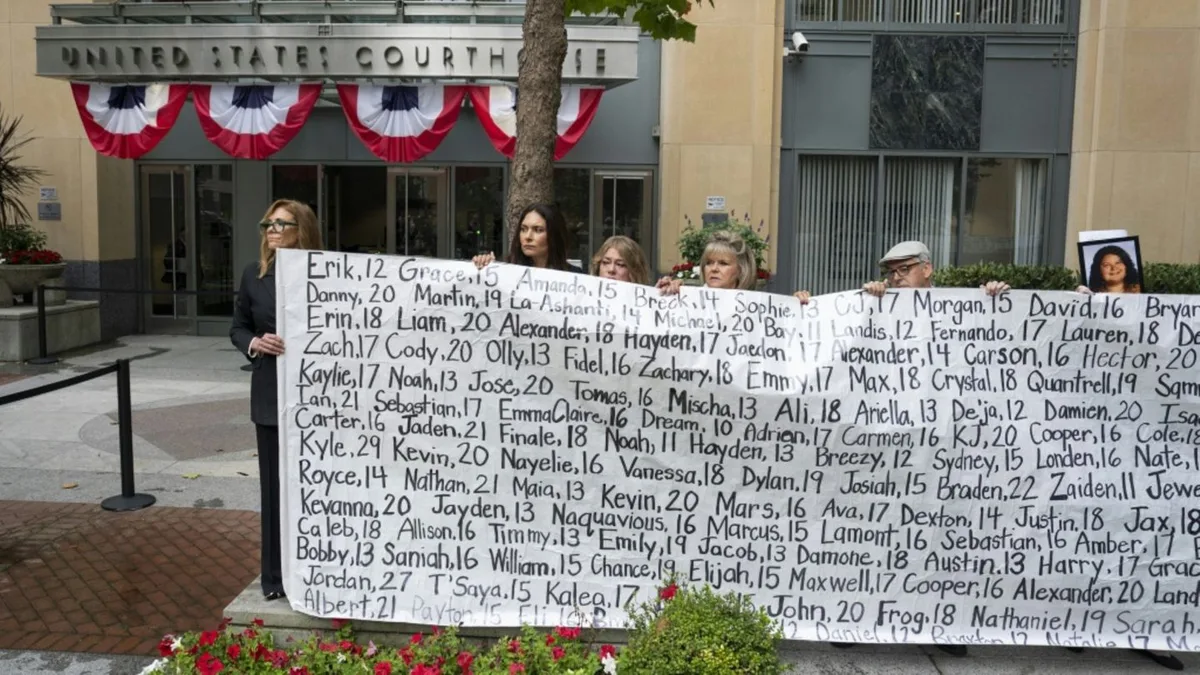 UNITED STATES COURTHOUSE
Erik, 12 Grace, 15 Amanda, 15 Brock, 14 Sophie, 13 CJ, 17 Morgan, 15 David, 16 Bryan
Danny, 20 Martin, 19 La-Ashanti, 14 Michael, 20 Bay, 11 Landis, 12 Fernando, 17 Lauren, 18
Erin, 18 Liam, 20 Alexander, 18 Hayden, 17 Jaedon, 17 Alexander, 14 Carson, 16 Hector, 20
Zach, 17 Cody, 20 Olly, 13 Fidel, 16 Zachary, 18 Emmy, 17 Max, 18 Crystal, 18 Quantrell, 19 Sam
Kaylie, 17 Noah, 13 Jose, 20 Tomas, 16 Mischa, 13 Ali, 18 Ariella, 13 De'ja, 12 Damien, 20 Isa
Ian, 21 Sebastian, 17 EmmaClaire, 16 Dream, 10 Adrien, 17 Carmen, 16 KJ, 20 Cooper, 16 Cole,
Carter, 16 Jaden, 21 Finale, 18 Noah, 11 Hayden, 13 Breezy, 12 Sydney, 15 Londen, 16 Nate, 1
Kyle, 29 Kevin, 20 Nayelie, 16 Vanessa, 18 Dylan, 19 Josiah, 15 Braden, 22 Zaiden, 11 Jewe
Royce, 14 Nathan, 21 Maia, 13 Kevin, 20 Mars, 16 Ava, 17 Dexton, 14 Justin, 18 Jax, 18
Kevanna, 20 Jayden, 13 Naquavious, 16 Marcus, 15 Lamont, 16 Sebastian, 16 Amber, 17
Caleb, 18 Allison, 16 Timmy, 13 Emily, 19 Jacob, 13 Damone, 18 Austin, 13 Harry, 17 Grac
Bobby, 13 Saniah, 16 William, 15 Chance, 19 Elijah, 15 Maxwell, 17 Cooper, 16 Alexander, 20 Land
Jordan, 27 T'Saya, 15 Kalea, 17 John, 20 Frog, 18 Nathaniel, 19 Sarah,
Albert, 21 Payton, 15 Eli, 16 Daniel, 12 Braxton, 12 Natalie, 17